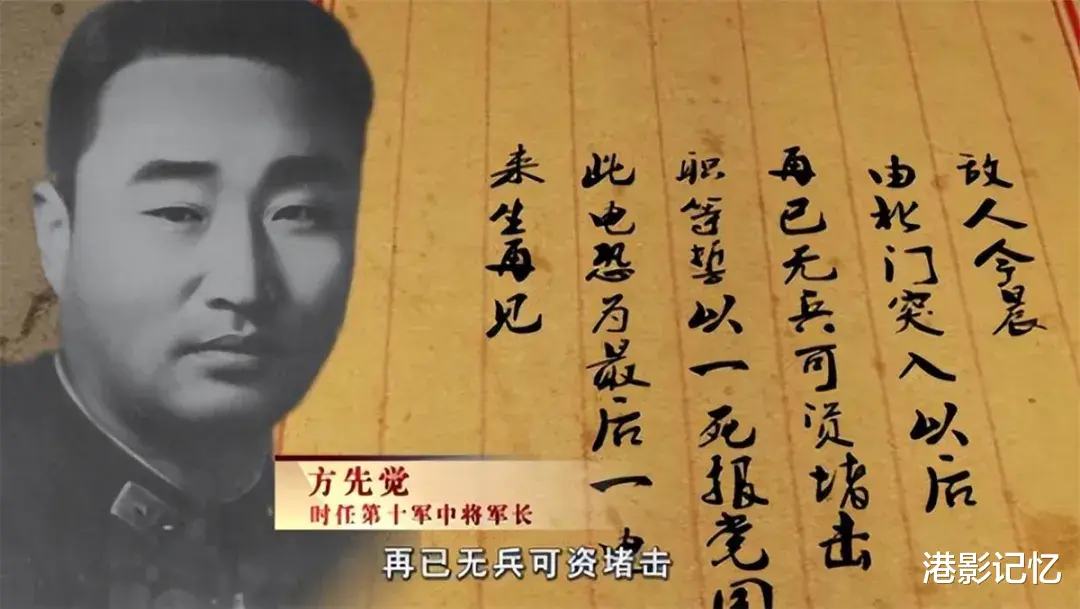 敌人今晨
由北门突入以后
再已无兵可资堵击
职等誓以一死报党国
此电恐为最后一电
来生再见
方先觉
时任第十军中将军长
再已无兵可资堵击
港影记忆